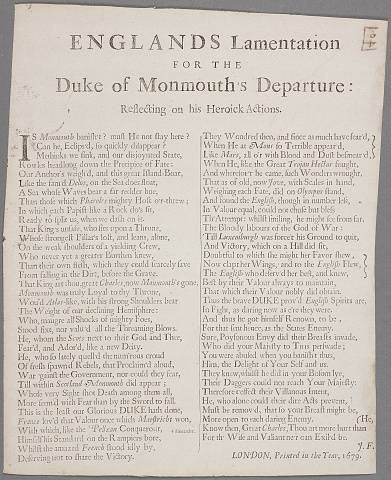 ENGLANDS Lamentation
FOR THE
Duke of Monmouth's Departure:
Reflecting on his Heroick Actions.
IS Monmouth banisht? must He not stay here?
Can he, Eclips'd, so quickly disappear?
Methinks we sink, and our disjoynted State,
Rowls headlong down the Precipice of Fate:
Our Anchor's weigh'd, and this great Island-Bear,
Like the fam'd Delos, on the Sea does float,
A Sea whose Waves bear a far redder hue,
Than those which Pharaohs mighty Host or-threw;
In which each Papist like a Rock does sit,
Ready to split us, when we dash on it.
That King's unsafe, who lies upon a Throne,
Whose strongest Pillars sink, and leans, alone,
On the weak shoulders of a yielding Crew,
Who never yet a greater Burthen knew,
Than their own flesh, which they could scarcely save
From falling in the Dirt, before the Grave.
That King art thou, great Charles, now Monmouth's gone,
Monmouth was truly loyal to thy Throne,
Wou'd Atlas-like, with his strong Shoulders bear
The Weight of our declining Hemisphere:
Who, maugre all Shocks of mighty Foes,
Stood fixt, nor valu'd all the Threatning Blows.
He, whom the Scots next to their God and Thee,
Fear'd, and Ador'd, like a new Deity.
He, who so lately quell'd the num'rous croud
Of fresh spawn'd Rebels, that Proclaim'd aloud,
War 'gainst the Government, nor could they fear,
Till within Scotland Monmouth did appear;
Whose very Sight shot Death among them all,
More seem'd with Fear than by the Sword to fall.
This is the least our Glorious DUKE hath done,
France lov'd that Valour once which Mastricht won,
Wish which, like the * Pellean Conquerour,
* Alexander.
Himself his Standard on the Rampiers bore,
Whilst the amazed French stood idly by,
Deserving not to share the Victory.
They Wondred then, and since as much have fear'd,
When He at Mons so Terrible appear'd,
Like Mars, all o'r with Blood and Dust besmear'd;
When He, like the Great Trojan Hector fought,
And wheresoe'r he came, such Wonders wrought,
That as of old, now Jove, with Scales in hand,
Weighing each Fate, did on Olympus stand,
And found the English, though in number less,
In Valour equal, could not chuse but bless
Th' Attempt: whilst smiling, he might see from far,
The Bloudy labours of the God of War:
Till Luxemburgh was forc't his Ground to quit,
And Victory, which on a Hill did sit,
Doubtful to which she might her Favor shew,
Now clapt her Wings, and to the English Flew,
The English who deserv'd her best, and knew,
Best by their Valour always to maintain,
That which their Valour nobly did obtain.
Thus the brave DUKE prov'd English Spirits are,
In Fight, as daring now as e're they were.
And thus he got himself Renown, to be,
For that sent hence, as the States Enemy.
Sure, Poysonous Envy did their Breasts invade,
Who did your Majesty to This perswade;
You were abused when you banisht thus,
Him, the Delight of Your Self and us.
They know, whilst he did in your Bosom lye,
Their Daggers could not reach Your Majesty:
Therefore cross'd their Villanous Intent,
He, who alone could their dire Acts prevent,
Must be remov'd, that to your Breast might be,
More open to each daring Enemy.
Know then, Great Charles, Thou art more hurt than (He,
For th' Wife and Valiant ner can Exil'd be.
J. F.
LONDON, Printed in the Year, 1679.